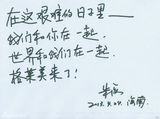 在这艰难的日子里——
我们和你在一起.
世界和我们在一起.
格莱美来了!
海南